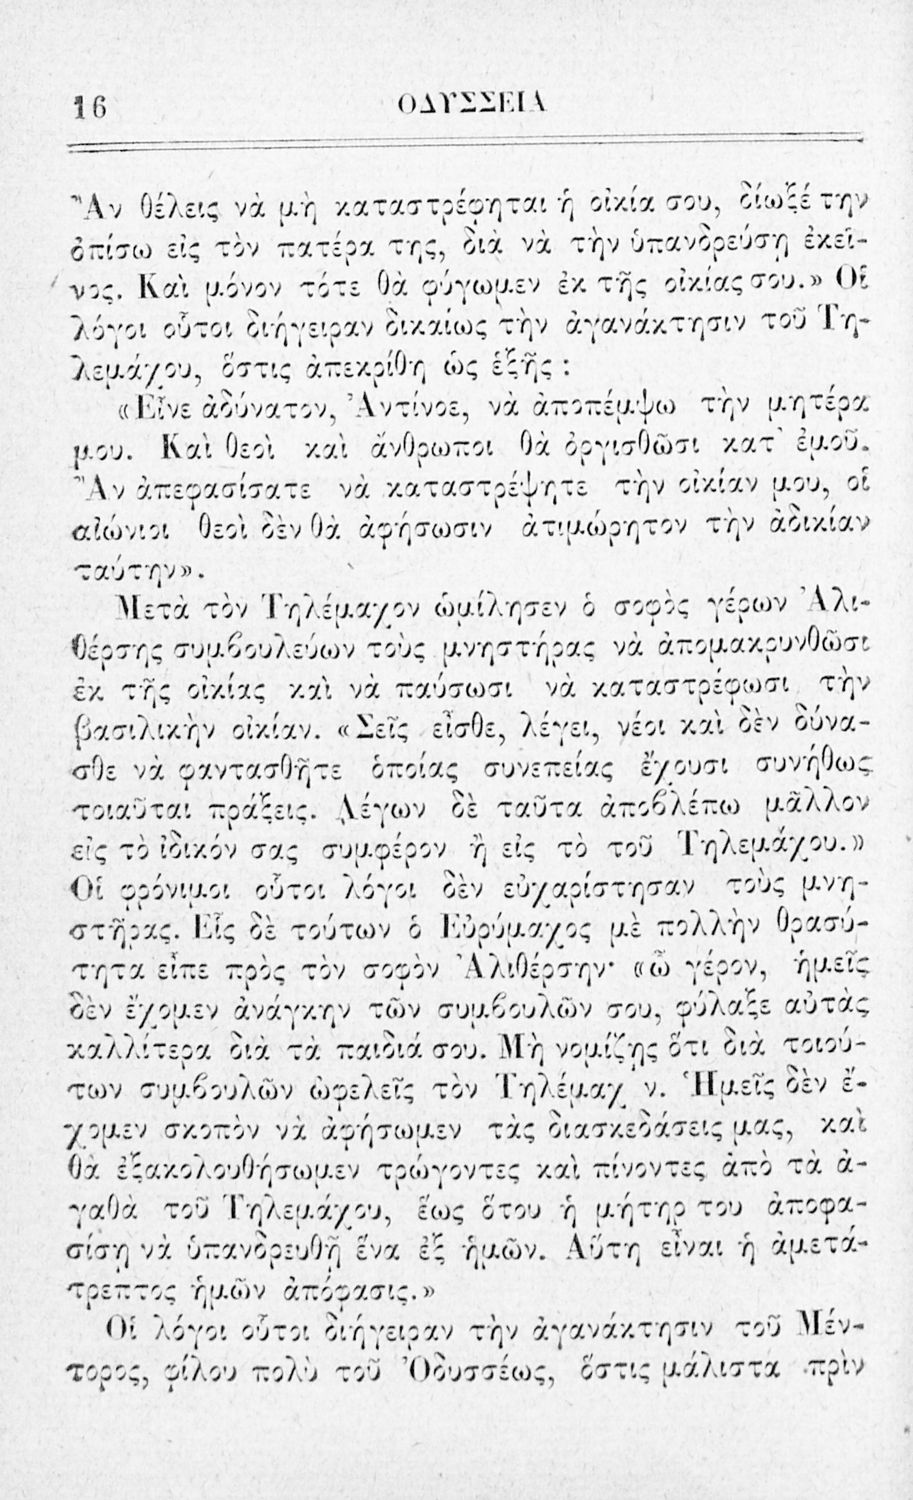 16 ΟΔΥΣΣΕΙΑ
Ἂν θέλεις νὰ μὴ καταστρέφηται ἡ οἰκία σου, δίωξέ την
ὀπίσω εἰς τὸν πατέρα της, διὰ νὰ τὴν ὑπανδρεύσῃ ἐκεῖ-
νος. Καὶ μόνον τότε θὰ φύγωμεν ἐκ τῆς οἰκίας σου.» Οἱ
λόγοι οὗτοι διήγειραν δικαίως τὴν ἀγανάκτησιν τοῦ Τη-
λεμάχου, ὅστις ἀπεκρίθη ὡς ἑξῆς :
«Εἶνε ἀδύνατον, Ἀντίνοε, νὰ ἀποπέμψω τὴν μητέρα
μου. Καὶ θεοὶ καὶ ἄνθρωποι θὰ ὀργισθῶσι κατ᾽ ἐμοῦ.
Ἂν ἀπεφασίσατε νὰ καταστρέψητε τὴν οἰκίαν μου, οἱ
αἰώνιοι θεοὶ δὲν θὰ ἀφήσωσιν ἀτιμώρητον τὴν ἀδικίαν
ταύτην».
Μετὰ τὸν Τηλέμαχον ὡμίλησεν ὁ σοφὸς γέρων Ἀλι-
θέρσης συμβουλεύων τοὺς μνηστήρας νὰ ἀπομακρυνθῶσι
ἐκ τῆς οἰκίας καὶ νὰ παύσωσι νὰ καταστρέφωσι τὴν
βασιλικὴν οἰκίαν. «Σεῖς εἶσθε, λέγει, νέοι καὶ δὲν δύνα-
σθε νὰ φαντασθῆτε ὁποίας συνεπείας ἔχουσι συνήθως
τοιαῦται πράξεις. Λέγων δὲ ταῦτα ἀποβλέπω μᾶλλον
εἰς τὸ ἰδικόν σας συμφέρον ἢ εἰς τὸ τοῦ Τηλεμάχου.»
Οἱ φρόνιμοι οὗτοι λόγοι δὲν εὐχαρίστησαν τοὺς μνη-
στῆρας. Εἷς δὲ τούτων ὁ Εὐρύμαχος μὲ πολλὴν θρασύ-
τητα εἶπε πρὸς τὸν σοφὸν Ἀλιθέρσην· «ὦ γέρον, ἡμεῖς
δὲν ἔχομεν ἀνάγκην τῶν συμβουλῶν σου, φύλαξε αὐτὰς
καλλίτερα διὰ τὰ παιδιά σου. Μὴ νομίζῃς ὅτι διὰ τοιού-
των συμβουλῶν ὠφελεῖς τὸν Τηλέμαχ ν. Ἡμεῖς δὲν ἔ-
χομεν σκοπὸν νὰ ἀφήσωμεν τὰς διασκεδάσεις μας, καὶ
θὰ ἐξακολουθήσωμεν τρώγοντες καὶ πίνοντες ἀπὸ τὰ ἀ-
γαθὰ τοῦ Τηλεμάχου, ἕως ὅτου ἡ μήτηρ του ἀποφα-
σίσῃ νὰ ὑπανδρευθῇ ἕνα ἐξ ἡμῶν. Αὕτη εἶναι ἡ ἀμετά-
τρεπτος ἡμῶν ἀπόφασις.»
Οἱ λόγοι οὗτοι διήγειραν τὴν ἀγανάκτησιν τοῦ Μέν-
τορος, φίλου πολὺ τοῦ Ὀδυσσέως, ὅστις μάλιστα πρὶν